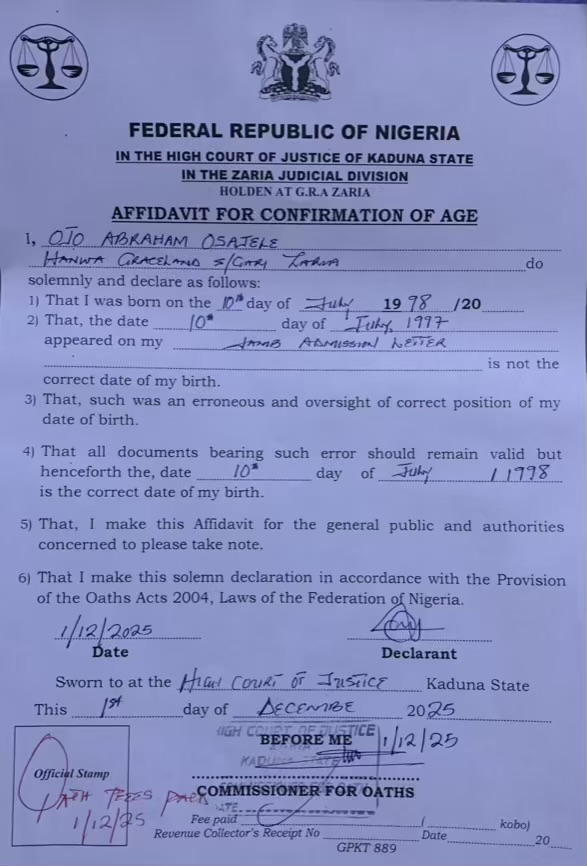 FEDERAL REPUBLIC OF NIGERIA
IN THE HIGH COURT OF JUSTICE OF KADUNA STATE
IN THE ZARIA JUDICIAL DIVISION
HOLDEN AT G.R.A ZARIA
AFFIDAVIT FOR CONFIRMATION OF AGE
I, OJO ABRAHAM OSAJELE
HANWA GRACELAND S/GARI ZARIA do
solemnly and declare as follows:
1) That I was born on the 10th day of July 1998 /20
2) That, the date 10th day of July, 1997
appeared on my JAMB ADMISSION LETTER
is not the
correct date of my birth.
3) That, such was an erroneous and oversight of correct position of my
date of birth.
4) That all documents bearing such error should remain valid but
henceforth the, date 10th day of July / 1998
is the correct date of my birth.
5) That, I make this Affidavit for the general public and authorities
concerned to please take note.
6) That I make this solemn declaration in accordance with the Provision
of the Oaths Acts 2004, Laws of the Federation of Nigeria.
1/12/2025
Date Declarant
Sworn to at the HIGH COURT OF JUSTICE Kaduna State
This 1st day of DECEMBE 2025
HIGH COURT OF JUSTICE
BEFORE ME 1/12/25
KADUNA STATE
Official Stamp
OATH FEES PAID
COMMISSIONER FOR OATHS
1/12/25
DATE
Fee paid ( kobo)
Revenue Collector's Receipt No Date 20
GPKT 889